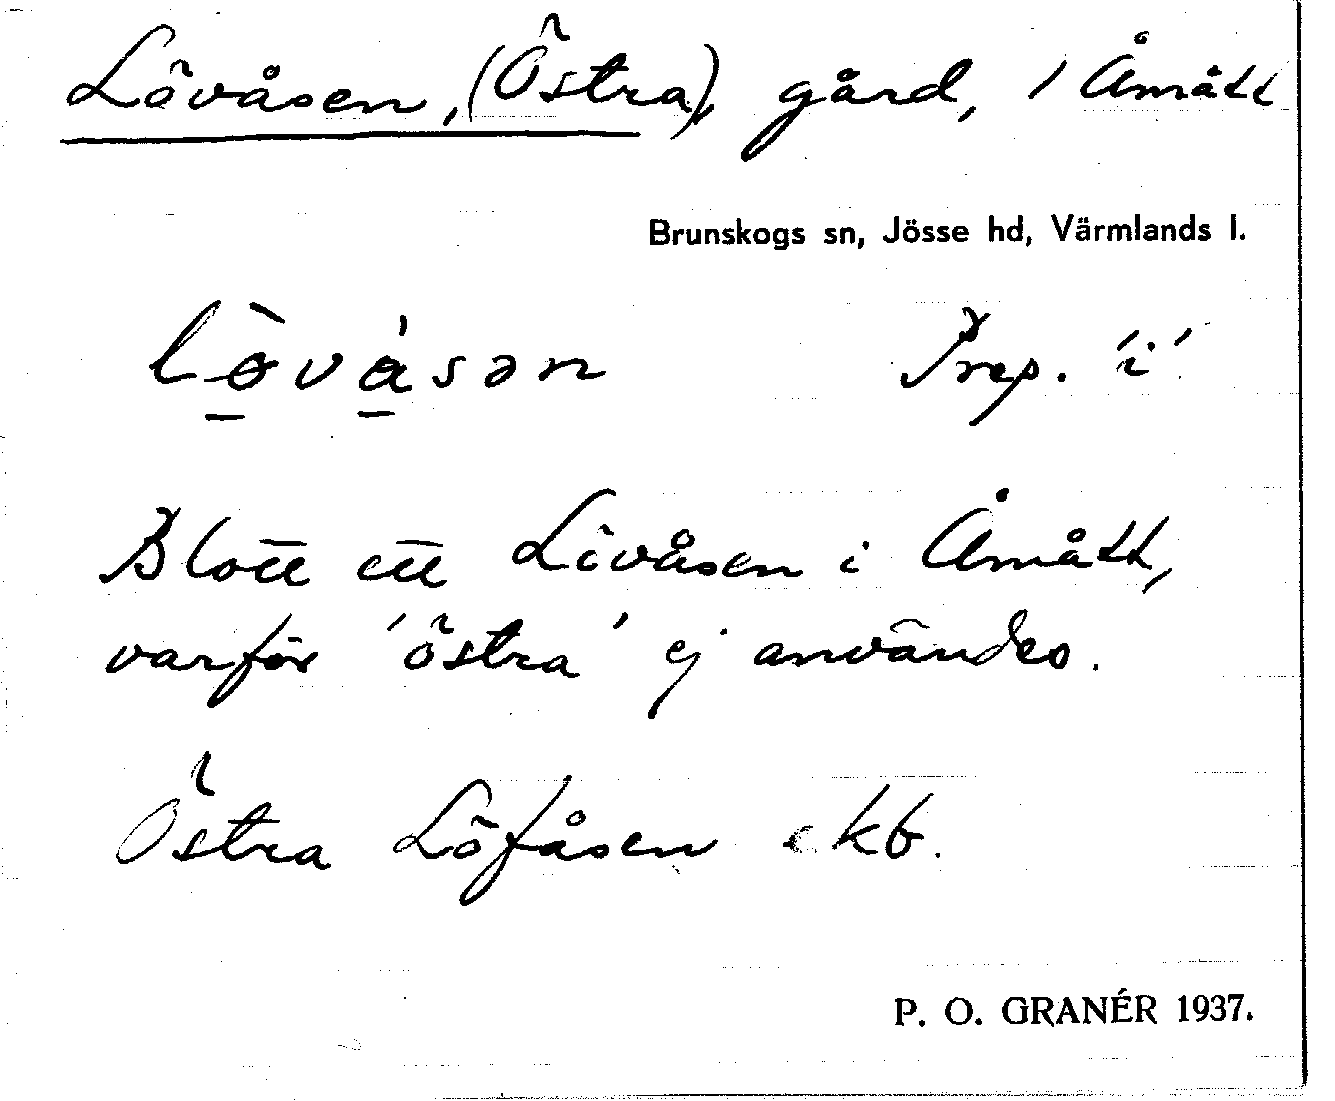 Lövåsen, (Östra), gård, i Åmått
Brunskogs sn, Jösse hd, Värmlands l.
Prep. 'i'
Blott ett Lövåsen i Åmått,
varför 'östra' ej användes.
Östra Löfåsen ekb.
P. O. GRANÉR 1937.